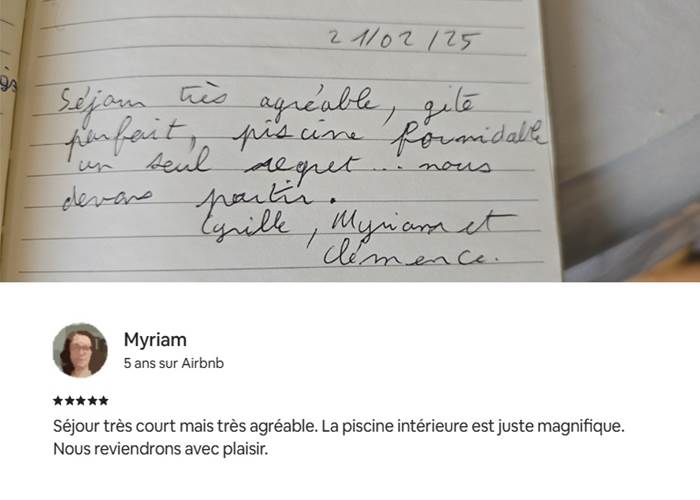 21/02/25
Séjour très agréable, gîte
parfait, piscine formidable
un seul regret... nous
devons partir.
Cyrille, Myriam et
Clémence.
Myriam
5 ans sur Airbnb
★★★★★
Séjour très court mais très agréable. La piscine intérieure est juste magnifique.
Nous reviendrons avec plaisir.